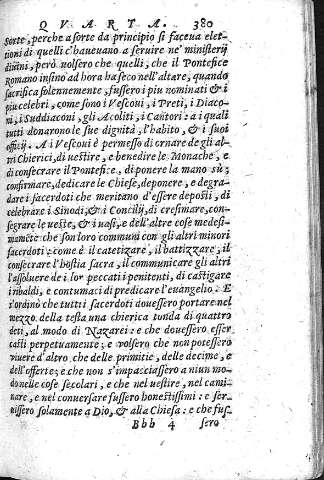 QVARTA. 380
Sorte, perche a sorte da principio si faceua elet-
tioni di quelli c'haueuano a seruire ne' ministerij
diuini, però volsero che quelli, che il Pontefice
Romano insino ad hora ha seco nell'altare, quando
sacrifica solennemente, fussero i piu nominati & i
piu celebri, come sono i Vescoui, i Preti, i Diaco-
ni, i Suddiaconi, gli Acoliti, i Cantori: a i quali
tutti donarono le sue dignità, l'habito, & i suoi
officij. A i Vescoui è permesso di ornare de gli al-
tri Chierici, di uestire, e benedire le Monache, e
di consecrare il Pontefice, di ponere la mano sù;
confirmare, dedicare le Chiese, deponere, e degra-
dare i sacerdoti che meritano d'essere deposti, di
celebrare i Sinodi, & i Concilij, di cresimare, con-
segrare le ueste, & i uasi, e dell'altre cose medesi-
mamẽte che son loro communi con gli altri minori
sacerdoti: come è il catetizare, il battizzare, il
consecrare l'hostia sacra, il communicare gli altri
l'assoluere de i lor peccati i penitenti, di castigare
i ribaldi, e contumaci di predicare l'euangelio. E
s'ordinò che tutti i sacerdoti douessero portare nel
mezzo della testa una chierica tonda di quattro
deti, al modo di Nazarei: e che douessero esser
casti perpetuamente; e volsero che non potessero
viuere d'altro che delle primitie, delle decime, e
dell'offerte; e che non s'impacciassero a niun mo-
do nelle cose secolari, e che nel uestire, nel cami-
nare, e nel conuersare fussero honestissimi: e ser-
uissero solamente a Dio, & alla Chiesa: e che fus-
Bbb 4 sero